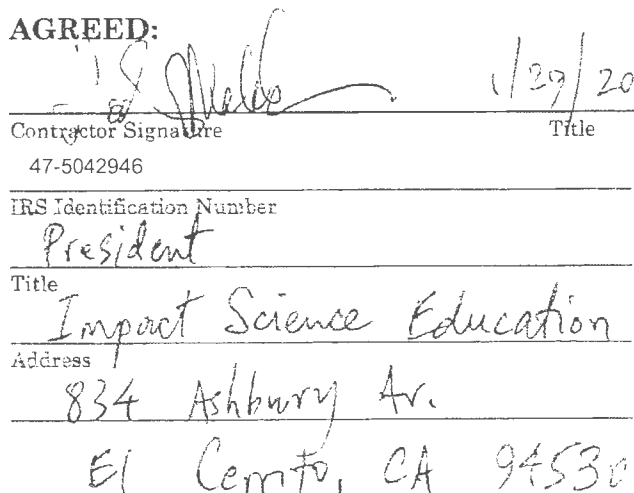 AGREED:
1/29/20
Contractor Signature Title
47-5042946
IRS Identification Number
President
Title
Impact Science Education
Address
834 Ashbury Av.
El Cerrito, CA 94530